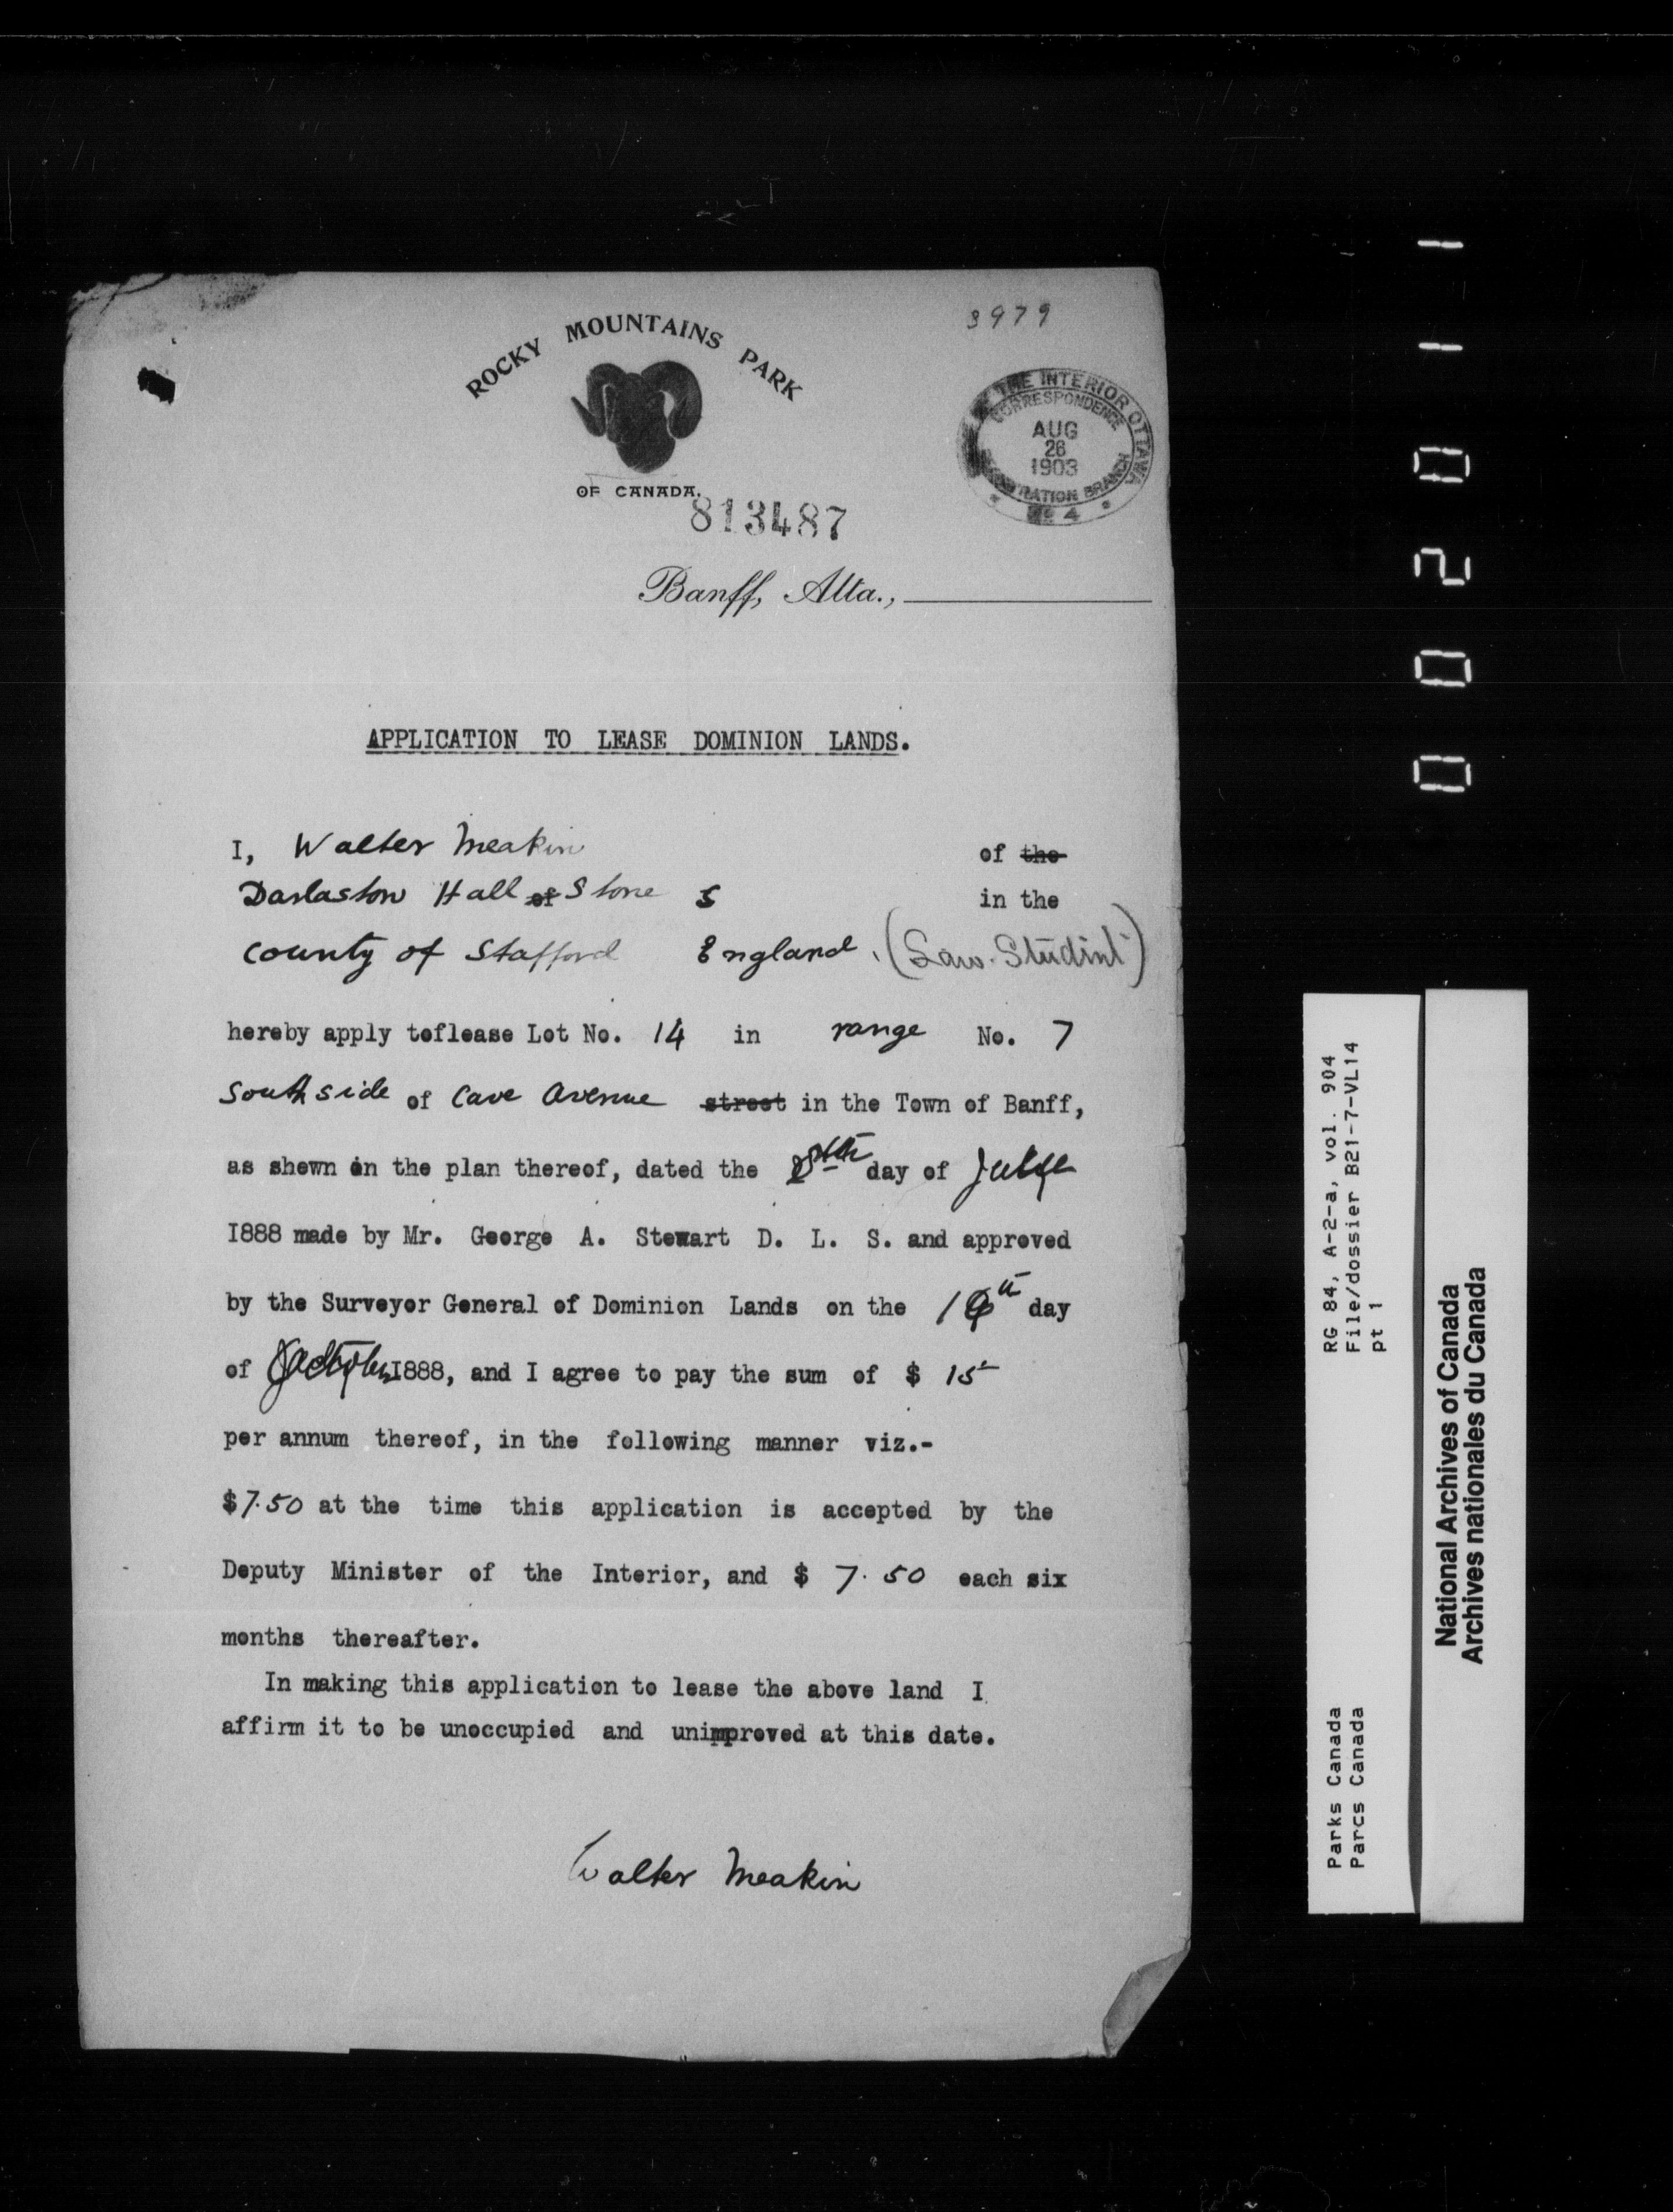 3979
ROCKY MOUNTAINS PARK
OF CANADA.
THE INTERIOR OTTAWA
CORRESPONDENCE
AUG
26
1903
BRANCH
No 4
813487
Banff, Alta.,
APPLICATION TO LEASE DOMINION LANDS.
I, Walter Meakin of the
Darlaston Hall of Stone S in the
County of Stafford England. (Law Student)
hereby apply toflease Lot No. 14 in range No. 7
South side of Cave Avenue street in the Town of Banff,
as shewn on the plan thereof, dated the day of July
1888 made by Mr. George A. Stewart D. L. S. and approved
by the Surveyor General of Dominion Lands on the day
of October 1888, and I agree to pay the sum of $ 15
per annum thereof, in the following manner viz.-
$7.50 at the time this application is accepted by the
Deputy Minister of the Interior, and $ 7.50 each six
months thereafter.
In making this application to lease the above land I
affirm it to be unoccupied and unimproved at this date.
Walter Meakin
002011
RG 84, A-2-a, vol. 904
File/dossier B21-7-VL14
pt 1
Parks Canada
Parcs Canada
National Archives of Canada
Archives nationales du Canada